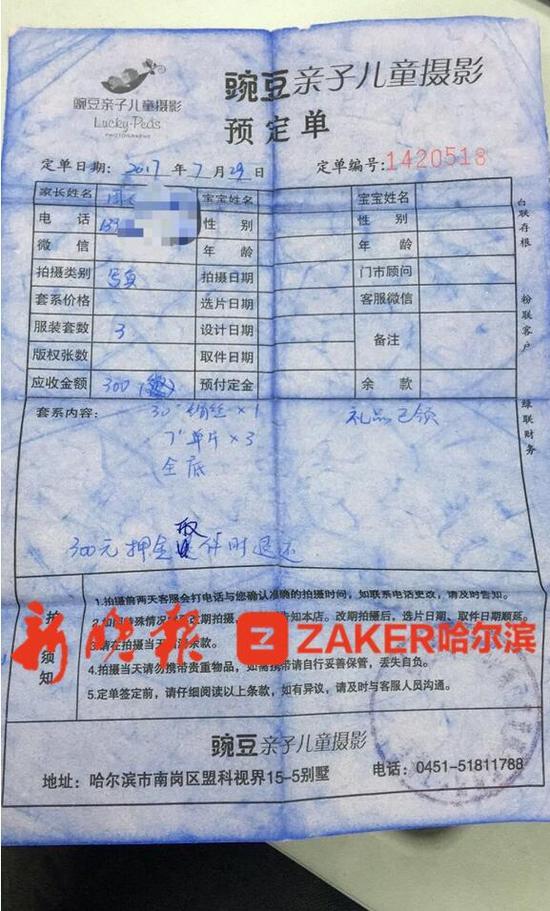 豌豆亲子儿童摄影
Lucky-Peas
PHOTOGRAPHY
豌豆亲子儿童摄影
预定单
定单日期: 2017 年 7 月 29 日
定单编号: 1420518
家长姓名 周 宝宝姓名 宝宝姓名
电 话 139 性 别 性 别
微 信 年 龄 年 龄
拍摄类别 写真 拍摄日期 门市顾问
套系价格 选片日期 客服微信
服装套数 3 设计日期 备注
版权张数 取件日期
应收金额 300 预付定金 余 款
白联存根
粉联客户
绿联财务
套系内容: 30" ×1
7"单片×3
全底
礼品已领
300元押金取件时退还
拍
须
知
1.拍摄前两天客服会打电话与您确认准确的拍摄时间,如联系电话更改,请及时告知。
2.如 特殊情况 改期拍摄, 告知本店。改期拍摄后,选片日期、取件日期顺延。
3.请在拍摄当天 余款。
4.拍摄当天请勿携带贵重物品,如需携带请自行妥善保管,丢失自负。
5.定单签定前,请仔细阅读以上条款,如有异议,请及时与客服人员沟通。
新晚报 ZAKER哈尔滨
豌豆亲子儿童摄影
地址: 哈尔滨市南岗区盟科视界15-5别墅 电话: 0451-51811788